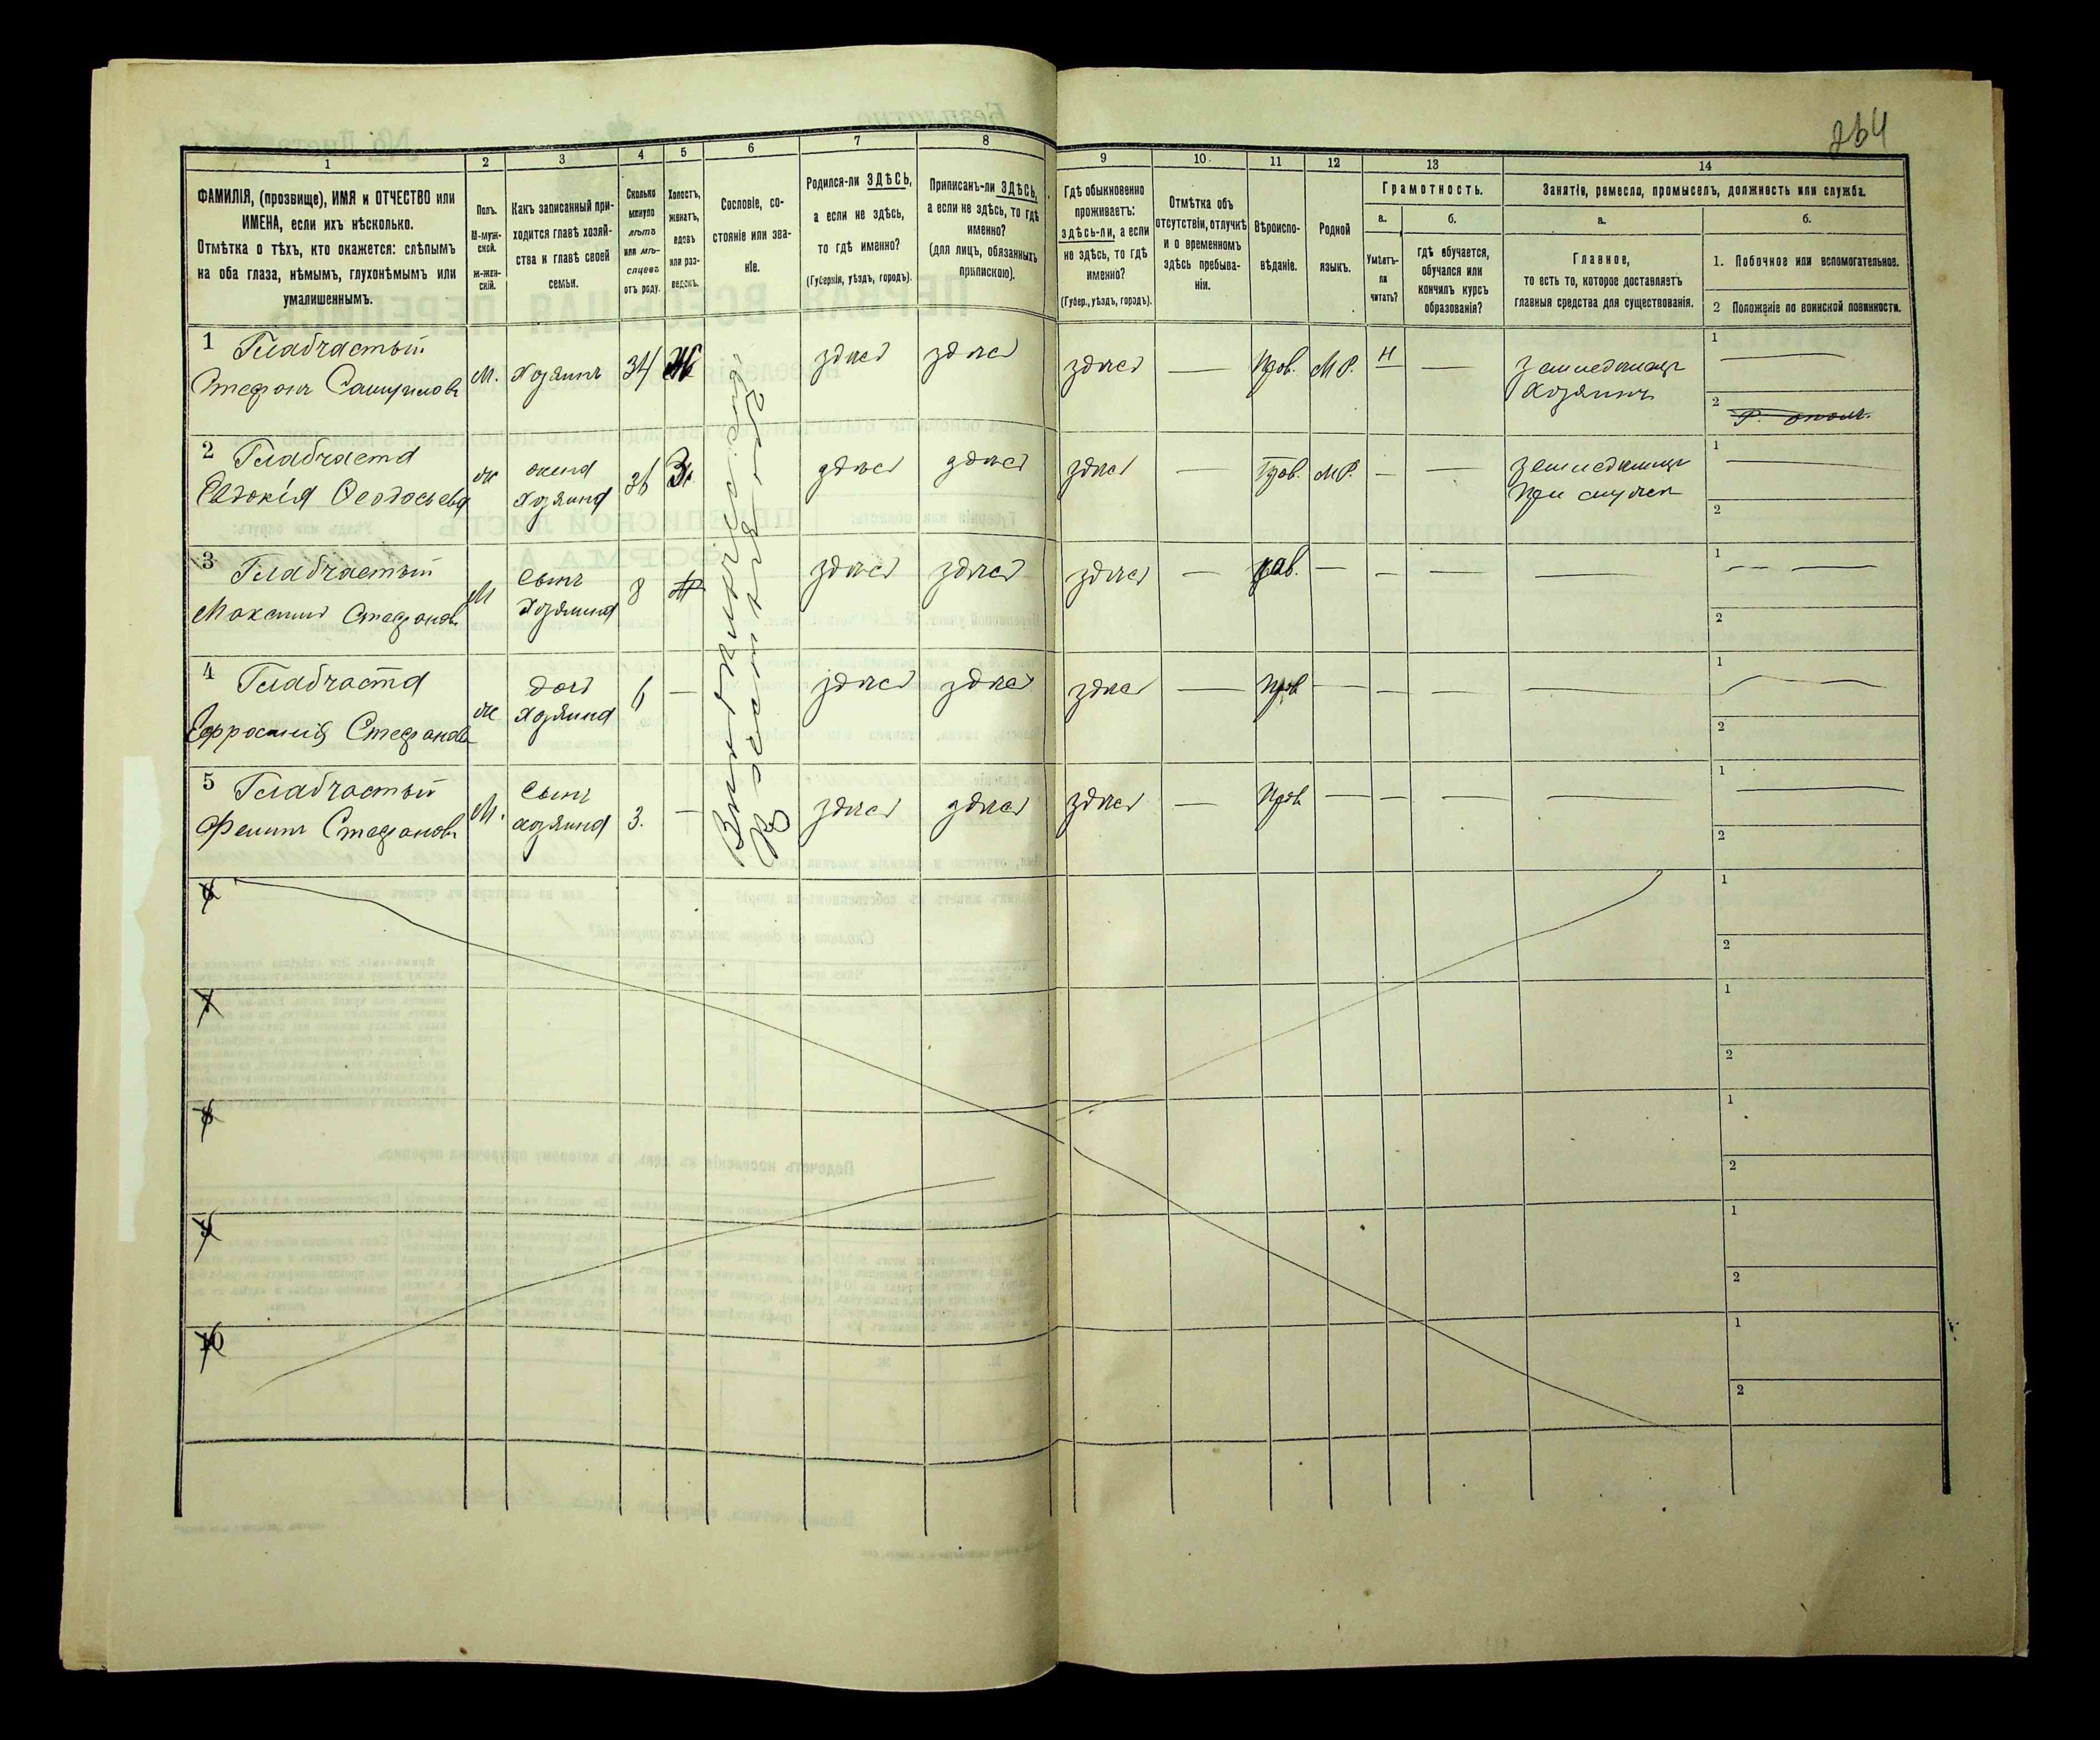 264
1
2
3
4
5
6
7
8
9
10
11
12
13
14
ФАМИЛІЯ, (прозвище), ИМЯ и ОТЧЕСТВО или
ИМЕНА, если ихъ нѣсколько.
Отмѣтка о тѣхъ, кто окажется: слѣпымъ
на оба глаза, нѣмымъ, глухонѣмымъ или
умалишеннымъ.
Полъ.
М-муж-
ской.
Ж-жен-
скій.
Какъ записанный при-
ходится главѣ хозяй-
ства и главѣ своей
семьи.
Сколько
минуло
лѣтъ
или мѣ-
сяцевъ
отъ роду.
Холостъ,
женатъ,
вдовъ
или раз-
веденъ.
Сословіе, со-
стояніе или зва-
ніе.
Родился-ли ЗДѢСЬ,
а если не здѣсь,
то гдѣ именно?
(Губернія, уѣздъ, городъ).
Приписанъ-ли ЗДѢСЬ,
а если не здѣсь, то гдѣ
именно?
(для лицъ, обязанныхъ
припискою).
Гдѣ обыкновенно
проживаетъ:
здѣсь-ли, а если
не здѣсь, то гдѣ
именно?
(Губер., уѣздъ, городъ).
Отмѣтка объ
отсутствіи, отлучкѣ
и о временномъ
здѣсь пребыва-
ніи.
Вѣроиспо-
вѣданіе.
Родной
языкъ.
Грамотность.
а.
б.
Умѣетъ-
ли
читать?
гдѣ обучается,
обучался или
кончилъ курсъ
образованія?
Занятіе, ремесло, промыселъ, должность или служба.
а.
б.
Главное,
то есть то, которое доставляетъ
главныя средства для существованія.
1. Побочное или вспомогательное.
2 Положеніе по воинской повинности.
1 Гладчастый
Стефанъ
М. Хозяинъ 34 Ж здѣсь здѣсь здѣсь — Прав. М.Р. Н —
Хозяинъ
1 —
2
2 Гладчаста
Евдокія Феодосьева
ж жена
Хозяина
36 З. здѣсь здѣсь здѣсь — Прав. М.Р. — —
1 —
2
3 Гладчастый
Максимъ Стефановъ
М Сынъ
Хозяина
8 здѣсь здѣсь здѣсь — прав. — — — —
1 —
2
4 Гладчаста
Ефросинія Стефанова
ж дочь
Хозяина
6 — здѣсь здѣсь здѣсь — Прав — — — —
1 —
2
5 Гладчастый
Стефановъ
М. Сынъ
хозяина
3. — здѣсь здѣсь здѣсь — Прав — — — —
1 —
2
6
1
2
7
1
2
8
1
2
9
1
2
10
1
2